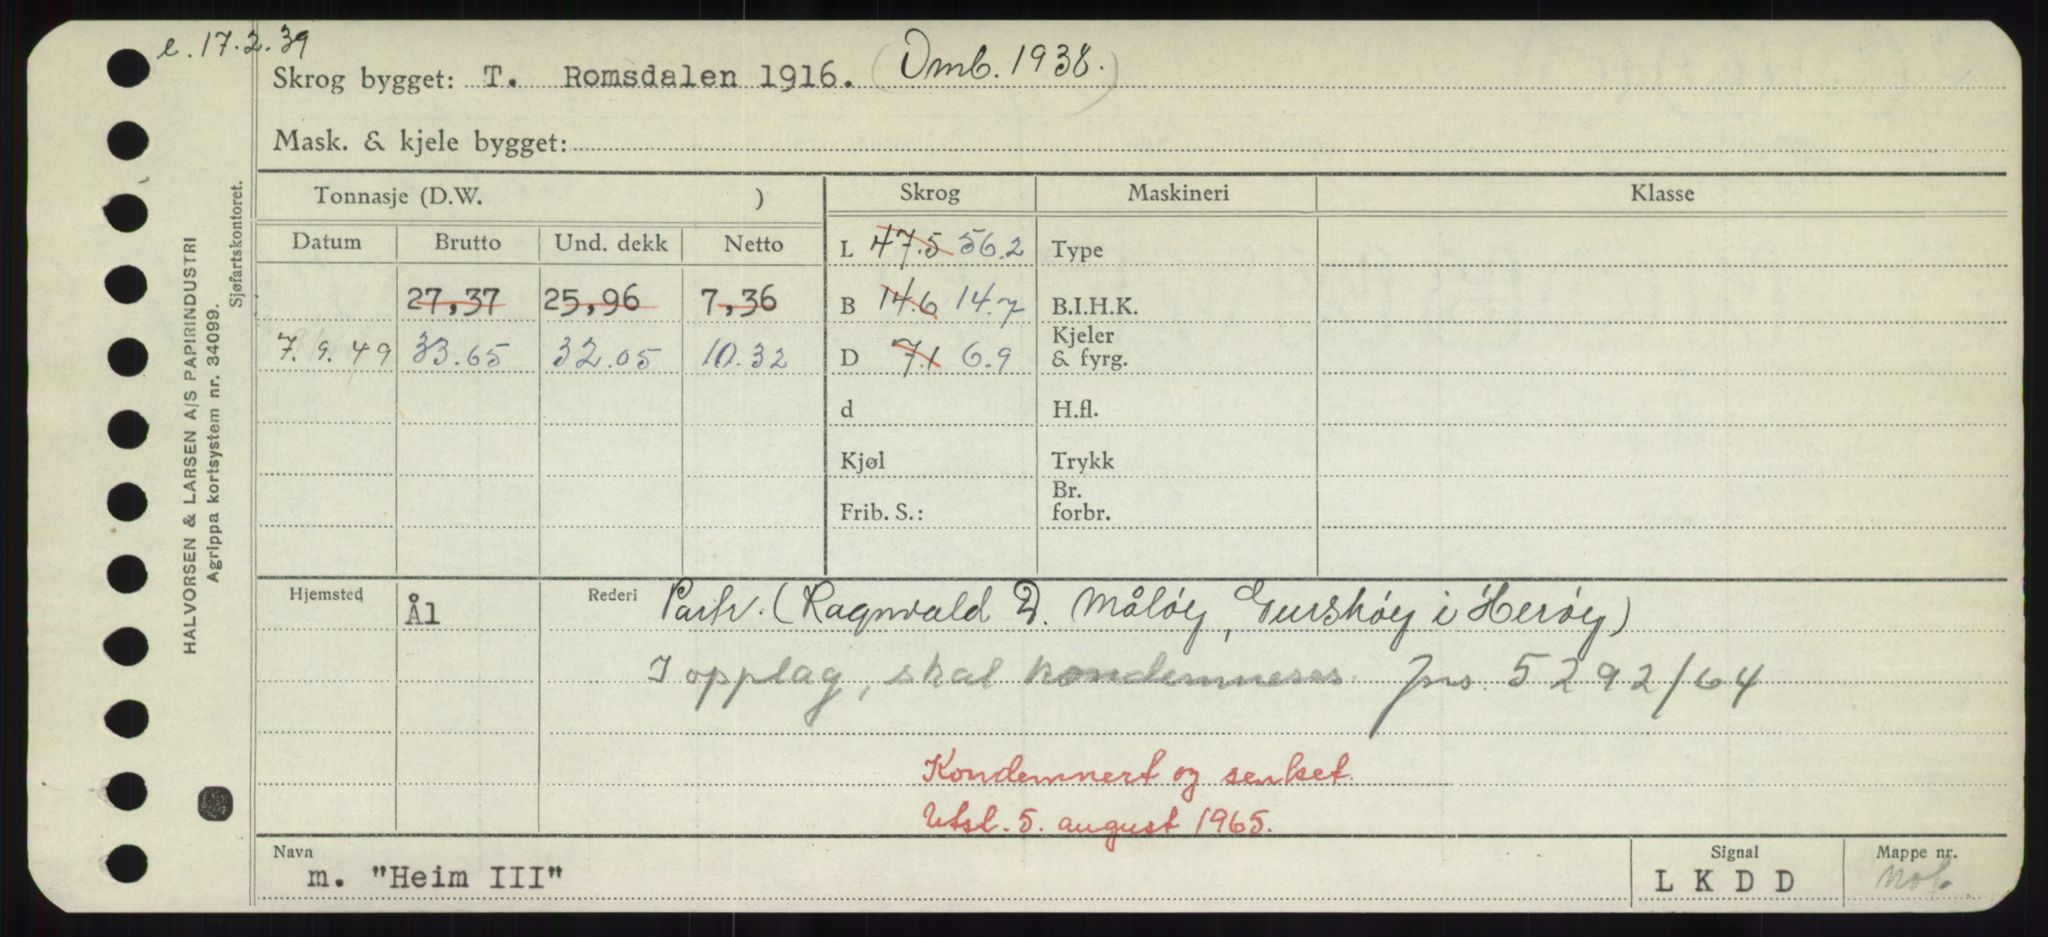 e. 17.2.39
Skrog bygget: T. Romsdalen 1916. (Omb. 1938.)
Mask. & kjele bygget:
HALVORSEN & LARSEN A/S PAPIRINDUSTRI
Agrippa kortsystem nr. 34099.
Sjøfartskontoret.
Tonnasje (D.W. ) Skrog Maskineri Klasse
Datum Brutto Und. dekk Netto L 47.5 56.2 Type
27,37 25,96 7,36 B 14.6 14.7 B.I.H.K.
7.9.49 33.65 32.05 10.32 D 7.1 6.9 Kjeler & fyrg.
d H.fl.
Kjøl Trykk
Frib. S.: Br. forbr.
Hjemsted Ål Rederi Partr. (Ragnvald D. Måløy, Gurskøy i Herøy)
I opplag, skal kondemneres. Jns. 5292/64
Kondemnert og senket.
Utsl. 5. august 1965.
Navn Signal Mappe nr.
m. "Heim III" L K D D